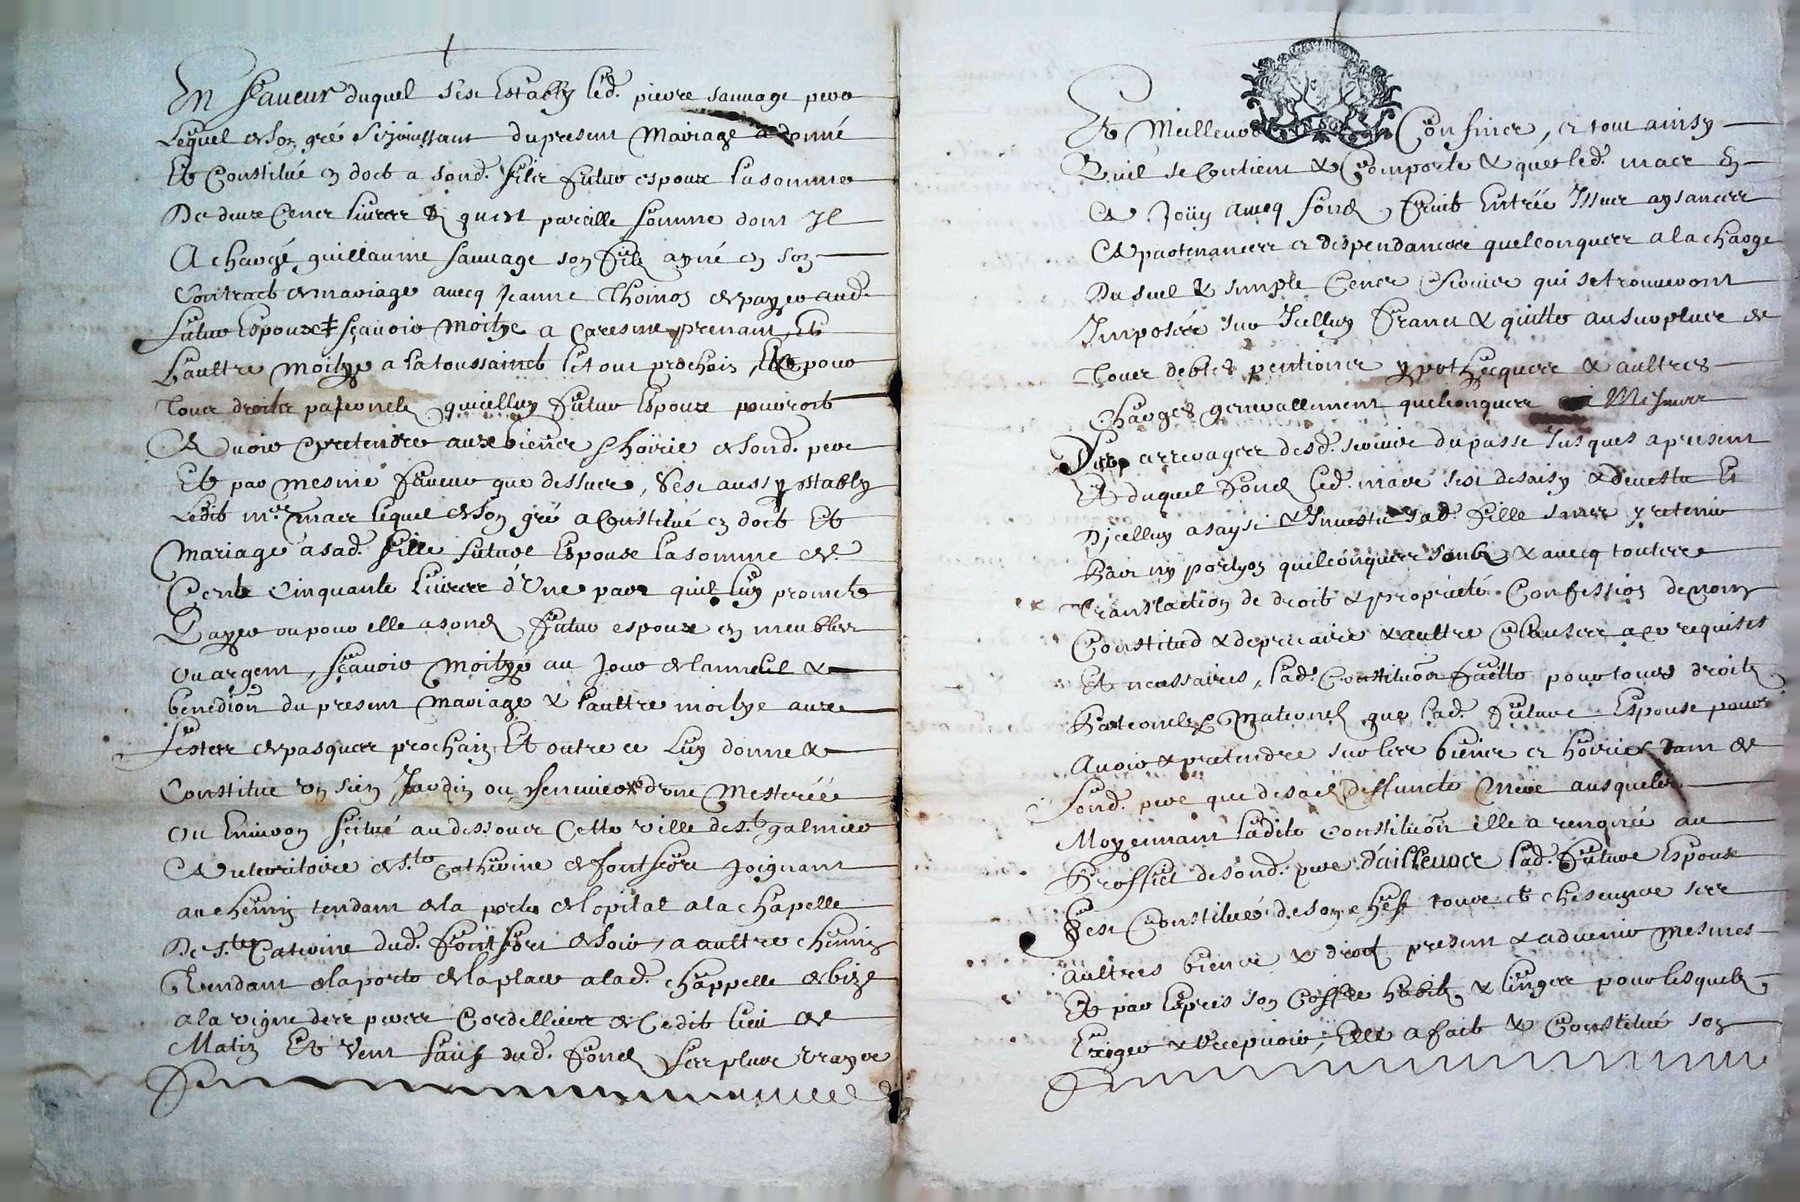 En faveur duquel sest estably led. pierre sauvage pere
Lequel de son gré sejouissant du present mariage a donné
Et constitué en doct a sond. filz futur espoux la somme
De deux cent livres & quest pareille somme dont Il
A chargé guillaume sauvage son filz ayné en son
Contract de mariage avecq Jeanne Thoinon de payer aud.
futur Espoux sçavoir moitye a caresme prenant Et
Laultre moitye a la toussainct le tout prochain, Et pour
Tous droitz paternelz quicelluy futur Espoux pouvroit
Avoir & pretendre aux biens & hoirie de sond. pere
Et par mesme faveur que dessus, sest aussy estably
Ledit mre mace lequel de son gré a constitué en doct Et
Mariage a sad. fille future Espouse la somme de
Cent cinquante livres d'Une part quil luy promet
Payer ou pour elle a sond. futur espoux en meubles
ou argent, sçavoir moitye au Jour de lanneul &
benedion du present mariage & laultre moitye aux
festes de pasques prochain Et outre ce luy donne &
Constitue un sien Jardin ou dune mesterée
Ou Environ scitué au dessoubz cette ville de st galmier
Au territoire de ste catherine de fontfort Joignant
au chemin tendant de la porte de lopital a la chapelle
De ste Caterine dud. fontfort de soir, a aultre chemin
Tendant de la porte de la place a lad. chappelle de bize
a la vigne des peres Cordelliers de cedit lieu de
Matin Et vent sauf dud. fond ses plus vrays
Et Meilleurs Confins, et tout ainsy
Quil se contient & comporte & que led. mace En
A Joüy avecq fond, fruit Entrée Issue aysances
Apartenances et despendances quelconques a la charge
Du seul & simple Cens & servis qui se trouveront
Imposés sur Icelluy franct & quitte au surplus de
Tous debtes pentions ypothecques & aultres
Charges generallement quelconques
arrerages desd. servis du passé Jusques a present
Et duquel fond led. mace sest desaisy & devestu Et
Djcelluy a saysi & Investu sad. fille sans y retenir
Part ny portyon quelconques soubz & avecq toutes
Translaction de droit & proprieté Confession de nom
Constitud & depreecaire & aultre Clauses a ce requises
Et necessaires, lad. constituõn faitte pour tous droitz
Paternelz & Maternelz que lad. future Espouse pouvoit
Avoir & pretendre sur les biens et hoiries tant de
sond. pere que de sad. deffuncte mere ausquelz
Moyennant ladite constituõn elle a renoncé au
Proffict de sond. pere d'ailleurs lad. future Espouse
Sest Constitueé de son chef tous et chescuns ses
aultres biens & droit present & advenir mesmes
Et par Expres son Coffre habitz & linges pour lesquelz
Exiger & Recepvoir, Elle a fait & Constitué son